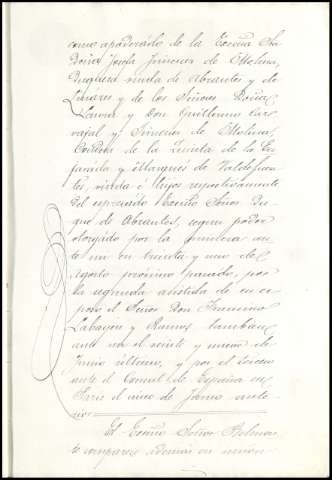 como apoderado de la Excma Sra
Doña Josefa Jimenez de Molina,
Duquesa viuda de Abrantes y de
Linares y de los Señores Doña
Laura y Don Guillermo Car
vajal y Jimenez de Molina,
Condesa de la Quinta de la En
jarada y Marqués de Valdefuen
tes, viuda é hijos respectivamente
del expresado Excmo Señor Du
que de Abrantes, segun poder
otorgado por la primera an
te mi en treinta y uno de
Agosto próximo pasado, por
la segunda asistida de su es
poso el Señor Don Francisco
Labayen y Ramos tambien
ante mi el veinte y nueve de
Junio último, y por el tercero
ante el Consul de España en
Paris el cinco de Junio ante-
rior
El Excmo Señor
comparece además en